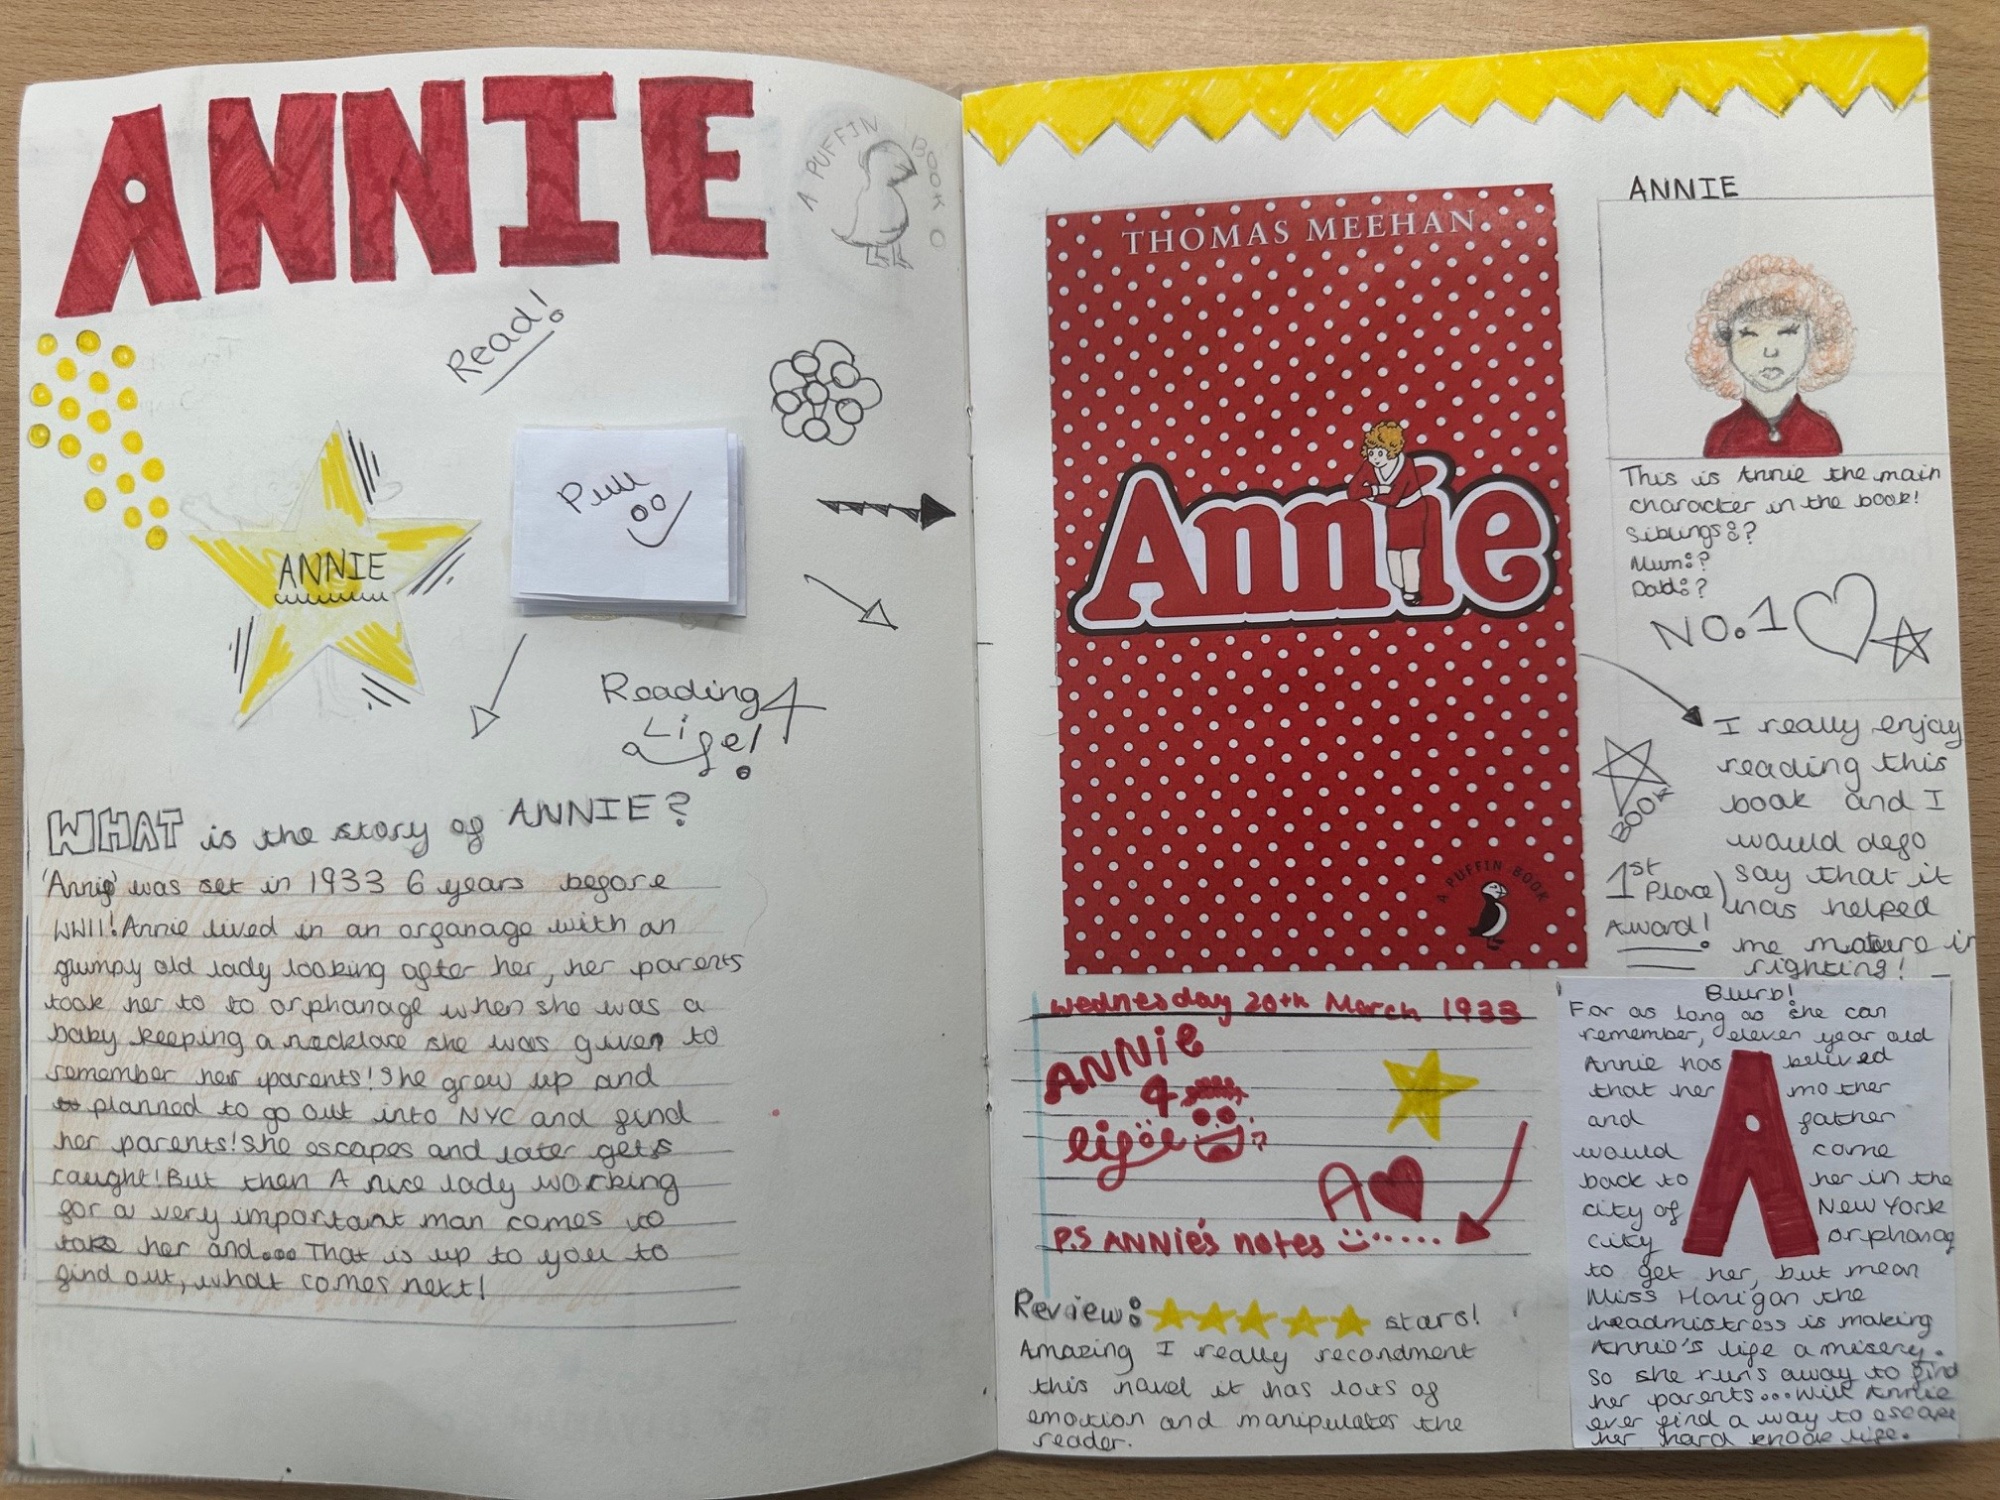 ANNIE
A PUFFIN BOOK O
Read!
ANNIE
Pull
Reading 4
Life!
WHAT is the story of ANNIE?
'Annie' was set in 1933 6 years before
WWII! Annie lived in an organage with an
grumpy old lady looking after her, her parents
took her to to orphanage when she was a
baby keeping a necklace she was given to
remember her parents! She grew up and
planned to go out into NYC and find
her parents! She escapes and later gets
caught! But then A nice lady working
for a very important man comes to
take her and... That is up to you to
find out, what comes next!
THOMAS MEEHAN
Annie
A PUFFIN BOOK
ANNIE
This is Annie the main
character in the book!
Siblings:?
Mum:?
Dad:?
NO.1
I really enjoy
reading this
book and I
would defo
say that it
has helped
me mature in
righting!
BOOK
1st
Place
Award!
Wednesday 20th March 1933
ANNiE
4
life
A
P.S ANNIE's notes
Review: stars!
Amazing I really recondment
this novel it has lots of
emotion and manipulates the
reader.
Blurb!
For as long as she can
remember, elever year old
Annie has belived
that her mother
and father
would come
back to her in the
city of New York
city orphanag
to get her, but mean
Miss Hanigan the
headmistress is making
Annie's life a misery.
So she runs away to find
her parents...Will Annie
ever find a way to escape
her hard knock life.